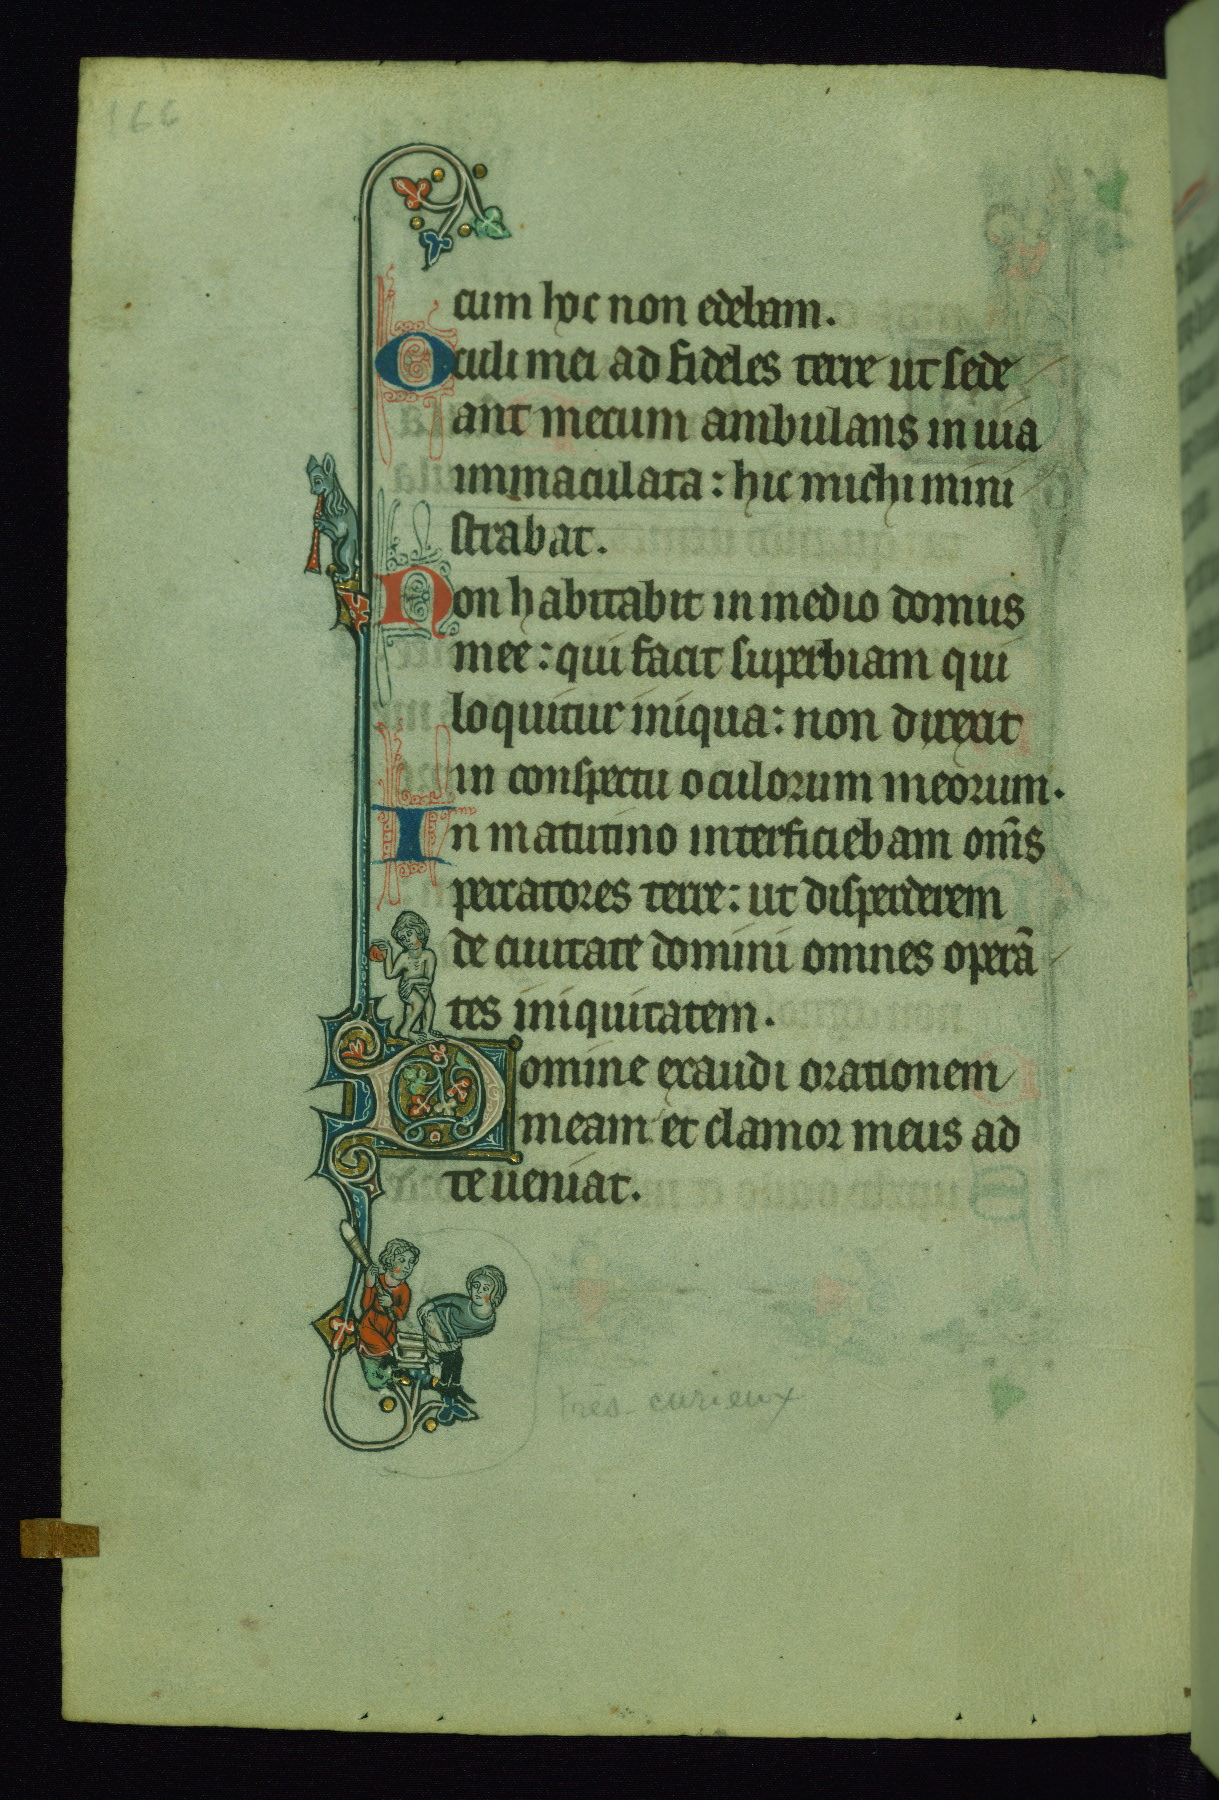 166
cum hoc non edebam.
Oculi mei ad fideles terre ut sede
ant mecum ambulans in uia
immaculata: hic michi mini
strabat.
Non habitabit in medio domus
mee: qui facit superbiam qui
loquitur iniqua: non direxit
in conspectu oculorum meorum.
In matutino interficiebam om̄s
peccatores terre: ut disperderem
de ciuitate domini omnes operā
tes iniquitatem.
Domine exaudi orationem
meam et clamor meus ad
te ueniat.
très curieux